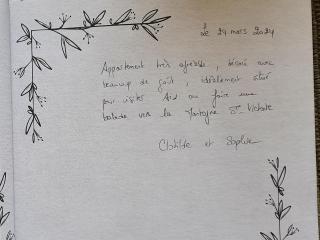 le 29 mars 2024
Appartement très agréable, décoré avec
beaucoup de goût, idéalement situé
pour visiter Aix ou faire une
balade vers la Montagne Ste Victoire
Clotilde et Sophie